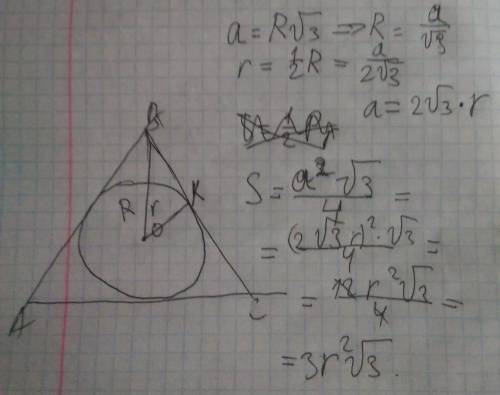 a = R√3 => R = a/√3
r = 1/2 R = a/2√3
a = 2√3 · r
S = a²√3/4 =
= (2√3 r)² · √3/4 =
= 12 r²√3/4 =
= 3r²√3.
B
R r K
O
A C